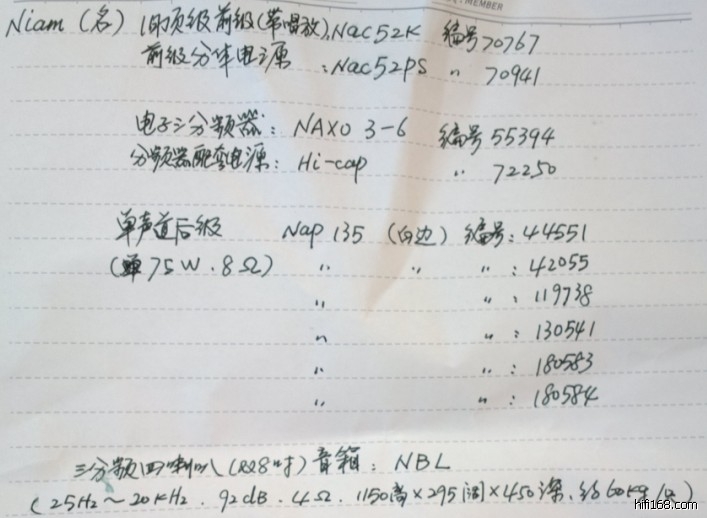 Q:MEMBER
Niam(名) 旧顶级前级(带唱放),Nac52K 编号70767
前级分体电源 :Nac52PS 〃 70941
电子三分频器: NAXO 3-6 编号55394
分频器配套电源: Hi-cap 〃 72250
单声道后级 Nap 135 (白边) 编号:44551
(单75W.8Ω) 〃 〃 〃 :42055
〃 〃 :119738
〃 〃 :130541
〃 〃 :180583
〃 〃 :180584
三分频四喇叭(双8吋)音箱: NBL
(25Hz~20KHz.92dB.4Ω.1150高×295阔×450深.约60kg/只)
hifi168.com